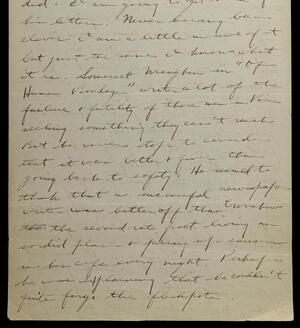 did. I am going to get
his letter. Never having been
clever I am a little in awe of it
but just the same I know what
it is. Somerset Maugham in "Of
Human Bondage" wrote a lot of the
failure & futility of those men in Paris
seeking something they can't reach.
But he never stops to consider
that it was better & for them
going back to safety. He seemed to
think that a successful newspaper
writer was better off than
the second rate poet living in
sordid place & a
in his cafe every night. Perhaps
he was explaining that he couldn't
quite forgo the fleshpots.